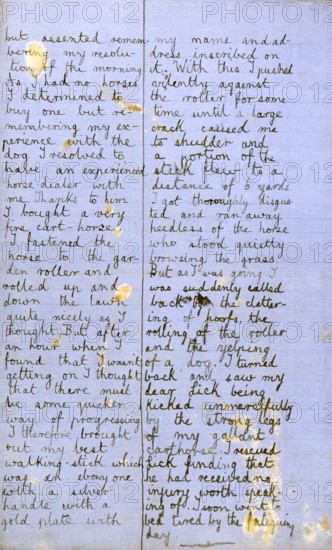 but assented remem-
bering my resolu-
tion of the morning
As I had no horses
I determined to
buy one but re-
membering my ex-
perience with the
dog I resolved to
have an experienced
horse-dealer with
me. Thanks to him
I bought a very
fine cart-horse.
I fastened the
horse to the gar-
den roller and
rolled up and
down the lawn
quite nicely as I
thought. But after
an hour when I
found that I wasn't
getting on I thought
that there must
be some quicker
way of progressing
I therefore brought
out my best
walking-stick which
was an ebony one
with a silver
handle with a
gold plate with
my name and ad-
dress inscribed on
it. With this I pushed
vidently against
the roller for some
time until a large
crack caused me
to shudder and
a portion of the
stick flew to a
distance of 6 yards
I got thoroughly disgus-
ted and ran away
heedless of the horse
who stood quietly
browsing the grass.
But as I was going I
was suddenly called
back by the clatter-
ing of hoofs, the
rolling of the roller
and the yelping
of a dog. I turned
back and saw my
dear Dick being
kicked unmercifully
by the strong legs
of my gallant
carthorse. I rescued
Dick finding that
he had received no
injury worth speak-
ing of. I soon went
bed tired by the fatiguing
day.